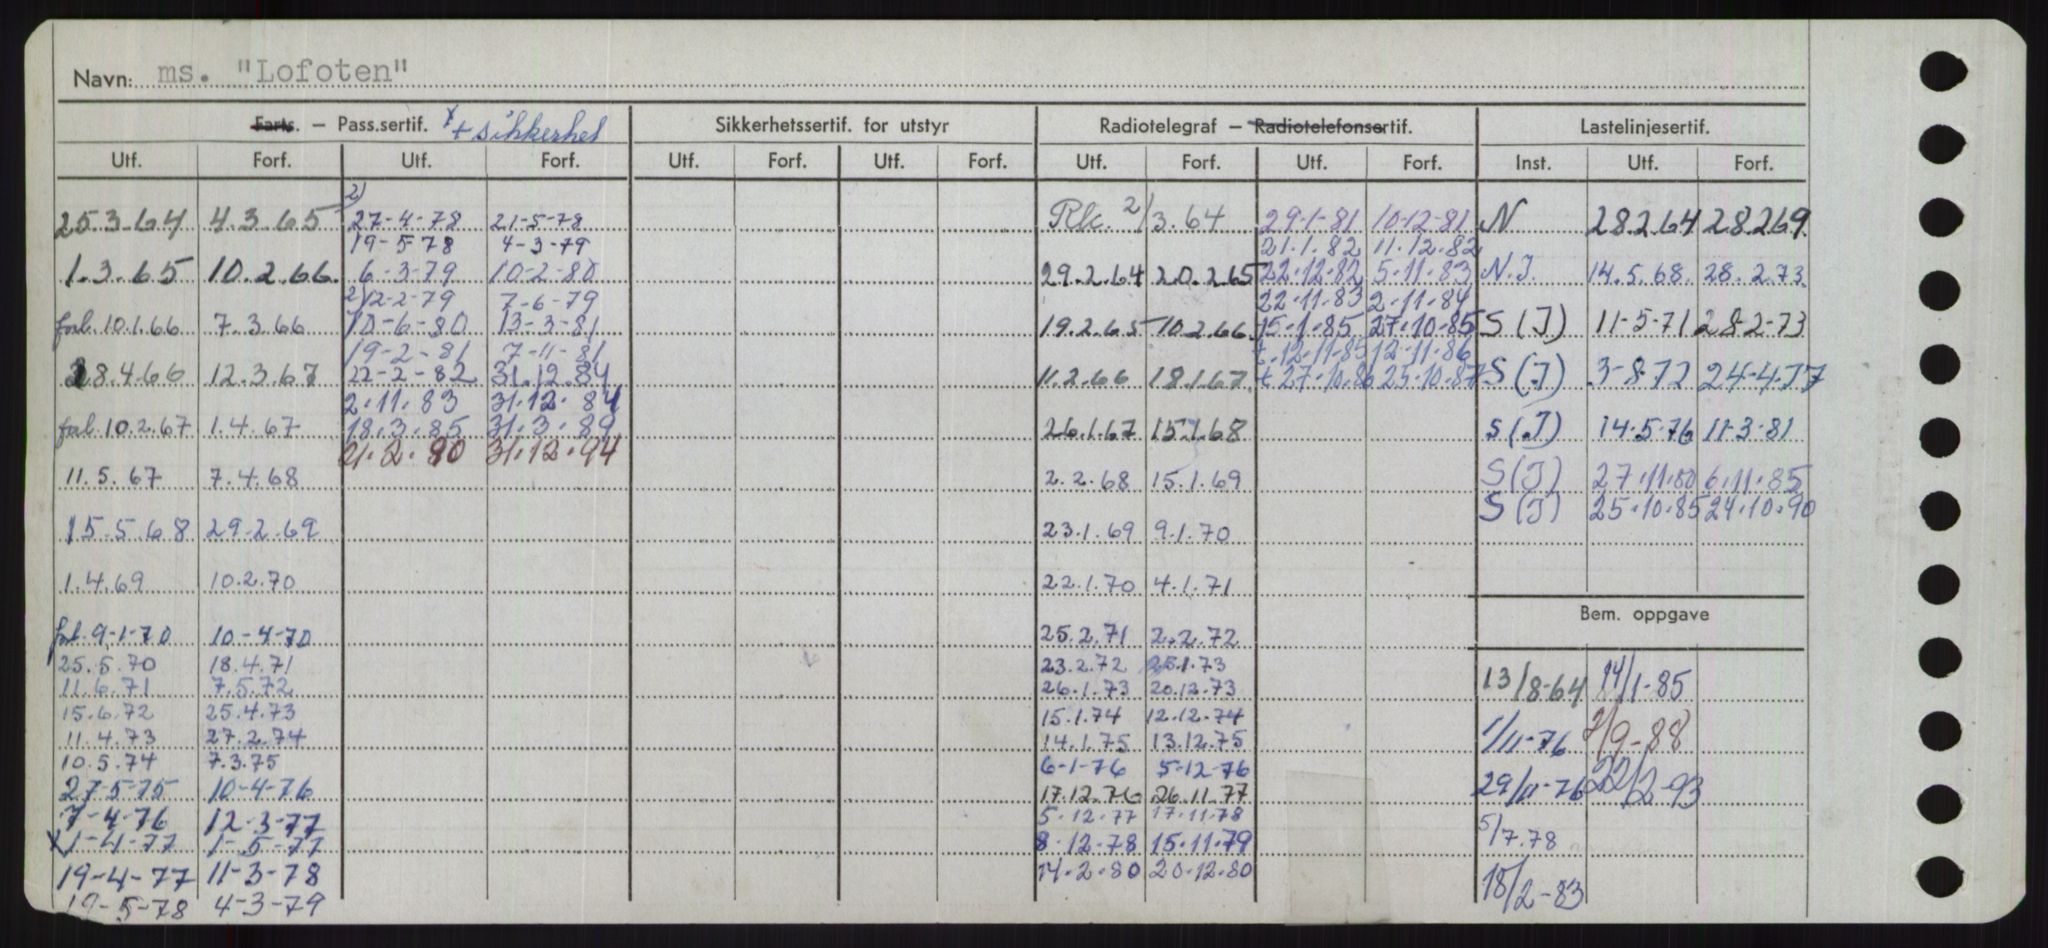 Navn: ms. "Lofoten"
Farts. – Pass.sertif. x + sikkerhet Sikkerhetssertif. for utstyr Radiotelegraf – Radiotelefonsertif. Lastelinjesertif.
Utf. Forf. Utf. Forf. Utf. Forf. Utf. Forf. Utf. Forf. Utf. Forf. Inst. Utf. Forf.
25.3.64 4.3.65 2) 27-4-78 21-5-78 Rlc. 2/3.64 29-1-81 10-12-81 N 28.2.64 28.2.69
19-5-78 4-3-79 21.1.82 11.12.82
1.3.65 10.2.66 6-3-79 10-2-80 29.2.64 20.2.65 22.12.82 5.11.83 N.I. 14.5.68. 28.2.73
2) 12-2-79 7-6-79 22.11.83 2.11.84
forl. 10.1.66 7.3.66 10-6-80 13-3-81 19.2.65 10.2.66 15.1.85 27.10.85 S (I) 11-5-71 28-2-73
19-2-81 7-11-81 t. 12-11-85 12-11-86
28.4.66 12.3.67 22-2-82 31.12.84 11.2.66 18.1.67 t 27.10.86 25.10.87 S (I) 3-8-72 24-4-77
2.11.83 31.12.84
forl. 10.2.67 1.4.67 18.3.85 31.3.89 26.1.67 15.1.68 S (I) 14.5.76 11-3-81
21.2.90 31.12.94
11.5.67 7.4.68 2.2.68 15.1.69 S (I) 27.11.80 6.11.85
S (I) 25.10.85 24.10.90
15.5.68 29.2.69 23.1.69 9.1.70
1.4.69 10.2.70 22.1.70 4.1.71
Bem. oppgave
forl. 9-1-70 10-4-70 25.2.71 2.2.72
25.5.70 18.4.71 23.2.72 25.1.73
11.6.71 7.5.72 26.1.73 20.12.73 13/8-64 14/1-85
15.6.72 25.4.73 15.1.74 12.12.74
11.4.73 27.2.74 14.1.75 13.12.75 1/11-76 2/9-88
10.5.74 7.3.75 6-1-76 5-12-76
27-5-75 10-4-76 17.12.76 26.11.77 29/11-76 22/2-93
7-4-76 12-3-77 5.12.77 17.11.78
x 1-4-77 1-5-77 8.12-78 15.11.79 5/7.78
19-4-77 11-3-78 14.2.80 20.12.80 18/2-83
19-5-78 4-3-79